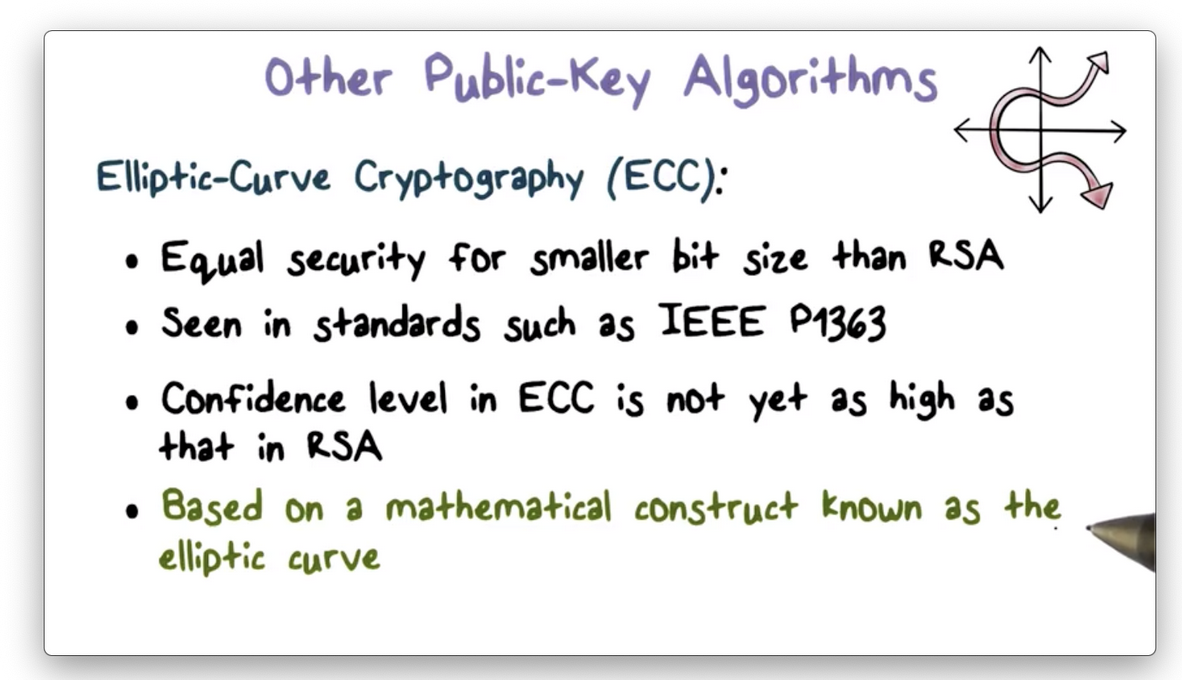 Other Public-Key Algorithms
Elliptic-Curve Cryptography (ECC):
• Equal security for smaller bit size than RSA
• Seen in standards such as IEEE P1363
• Confidence level in ECC is not yet as high as
that in RSA
• Based on a mathematical construct known as the
elliptic curve